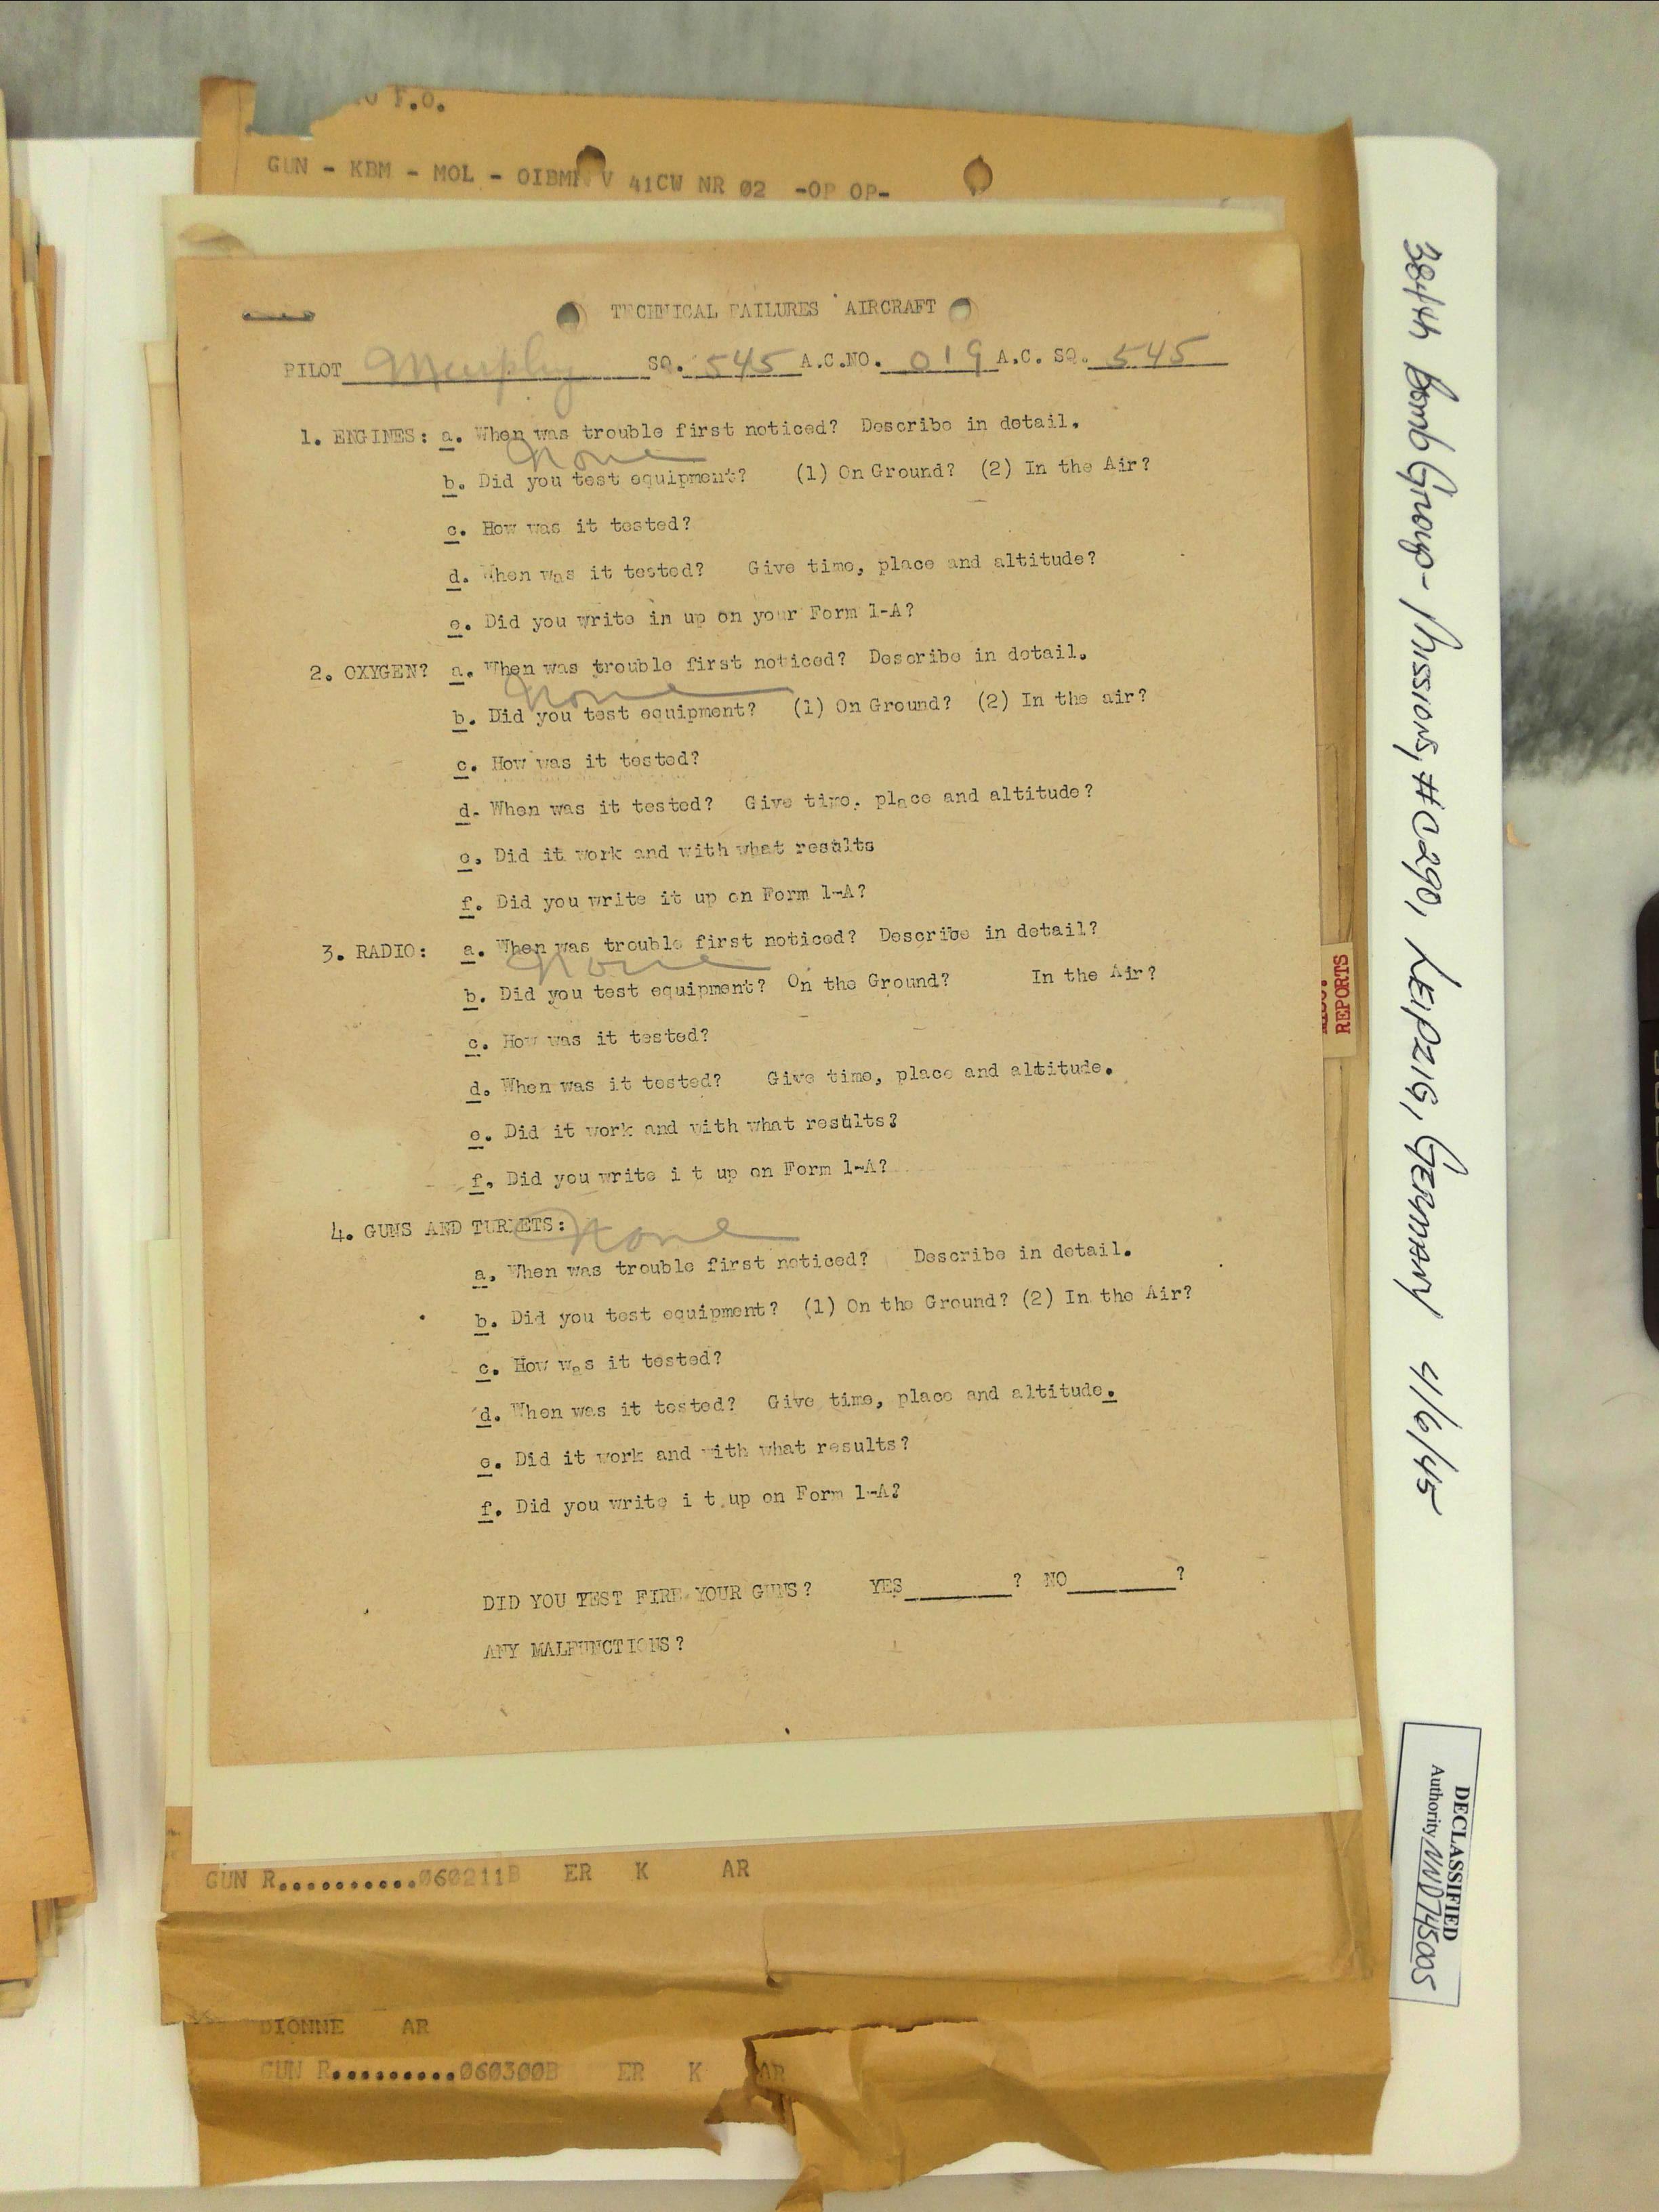 F.O.
GUN - KBM - MOL - OIBMN V 41CW NR 02 -OP OP-
TECHNICAL FAILURES AIRCRAFT
PILOT Murphy SQ. 545 A.C.NO. 019 A.C. SQ. 545
1. ENGINES: a. When was trouble first noticed? Describe in detail.
None
b. Did you test equipment? (1) On Ground? (2) In the Air?
c. How was it tested?
d. When was it tested? Give time, place and altitude?
e. Did you write in up on your Form 1-A?
2. OXYGEN? a. When was trouble first noticed? Describe in detail.
None
b. Did you test equipment? (1) On Ground? (2) In the air?
c. How was it tested?
d. When was it tested? Give time, place and altitude?
e. Did it work and with what results
f. Did you write it up on Form 1-A?
3. RADIO: a. When was trouble first noticed? Describe in detail?
None
b. Did you test equipment? On the Ground? In the Air?
c. How was it tested?
d. When was it tested? Give time, place and altitude.
e. Did it work and with what results?
f. Did you write i t up on Form 1-A?
4. GUNS AND TURRETS: None
a. When was trouble first noticed? Describe in detail.
b. Did you test equipment? (1) On the Ground? (2) In the Air?
c. How was it tested?
d. When was it tested? Give time, place and altitude.
e. Did it work and with what results?
f. Did you write i t up on Form 1-A?
DID YOU TEST FIRE YOUR GUNS? YES ? NO ?
ANY MALFUNCTIONS?
GUN R..........060211B ER K AR
DIONNE AR
GUN R..........060300B ER K AR
REPORTS
384th Bomb Group - Missions, #C290, LEIPZIG, GERMANY 4/6/45
DECLASSIFIED
Authority NND745005